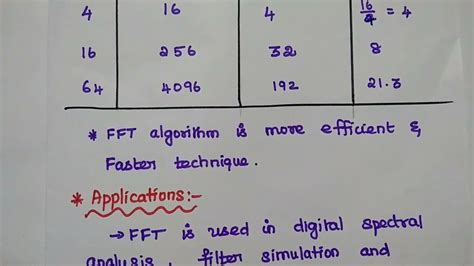 4 16 4 16/4 = 4
16 256 32 8
64 4096 192 21.3
* FFT algorithm is more efficient &
Faster technique.
* Applications:-
→ FFT is used in digital spectral
analysis, filter simulation and